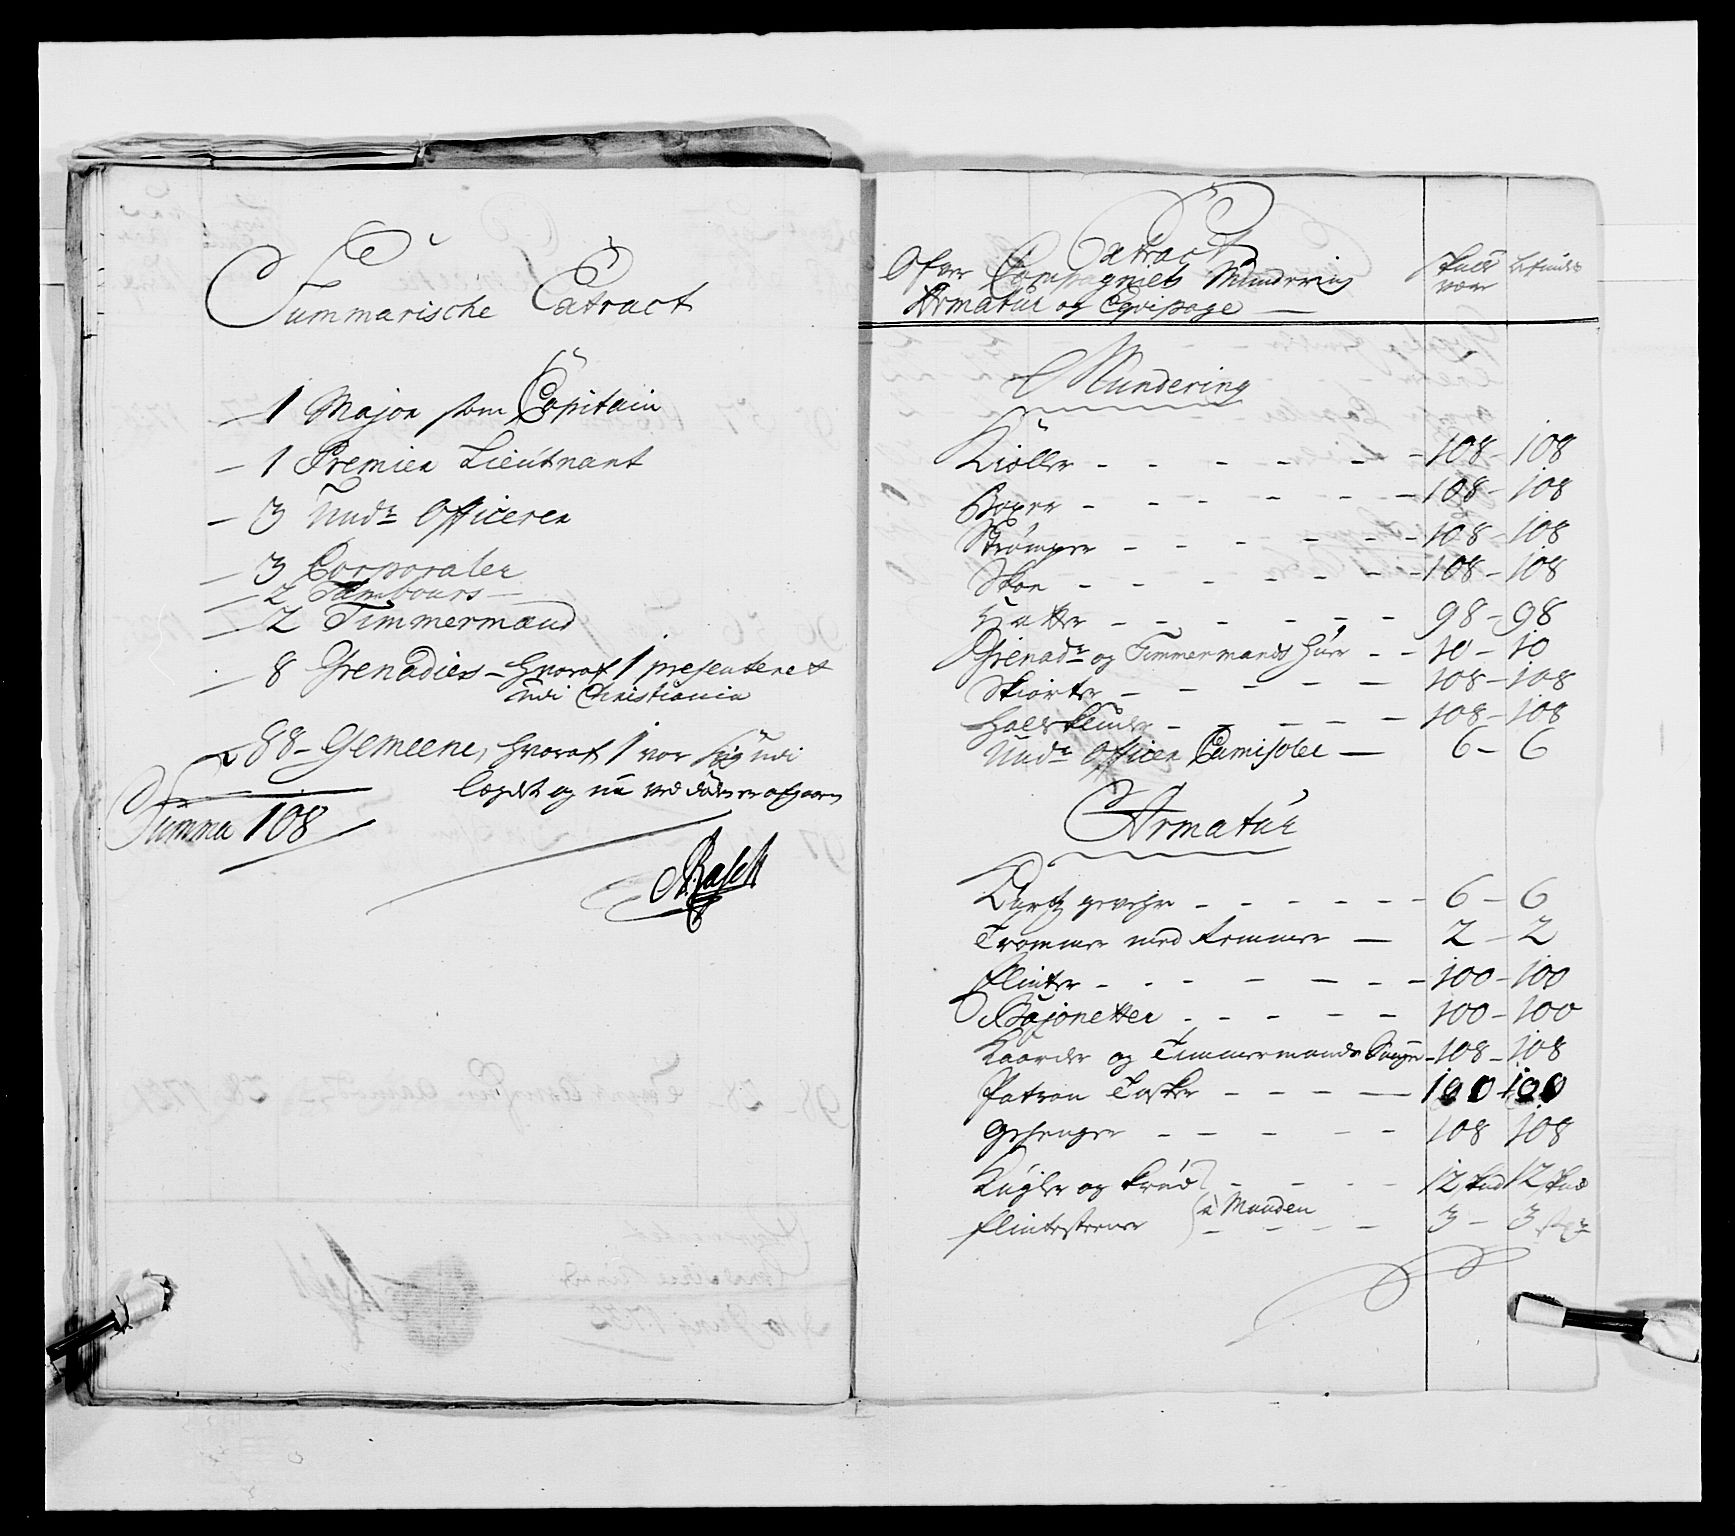 Summarische Extract
1 Major som Capitain
1 Premier Lieutnant
3 Undr Officerer
3 Corporaler
2 Tambours
2 Timmermænd
8 Grenadiers hvoraf 1 præsenteret
udi Christiania
88 Gemeene, hvoraf 1 var syg udi
og nu ved
Summa 108
ARasch
Extract
Ofver Compagniets Mundering
Armatur og Eqvipage
skall være befindes
Mundering
Kioller 108 108
Boxer 108 108
Strømper 108 108
Skoe 108 108
Hatte 98 98
Grenadr og Timmermands Huer 10 10
Skiorter 108 108
Halsklude 108 108
Undr Officer Camisoler 6 6
Armatur
Kurtz gevehr 6 6
Trommer med Remmer 2 2
Flinter 100 100
Bajonetter 100 100
Kaarder og Timmermands 108 108
Patron Tasker 100 100
Gehenger 108 108
Kugler og krud 12 skud 12 skud
à Manden
Flintesteene 3 3